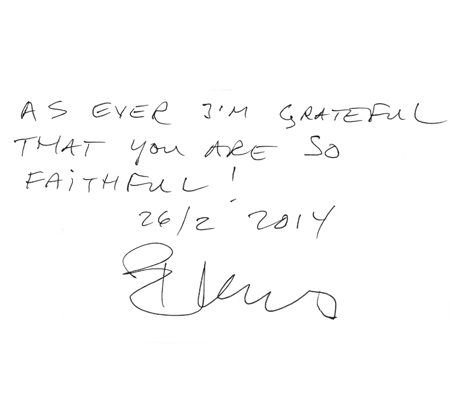 AS EVER I'M GRATEFUL
THAT YOU ARE SO
FAITHFUL!
26/2 2014